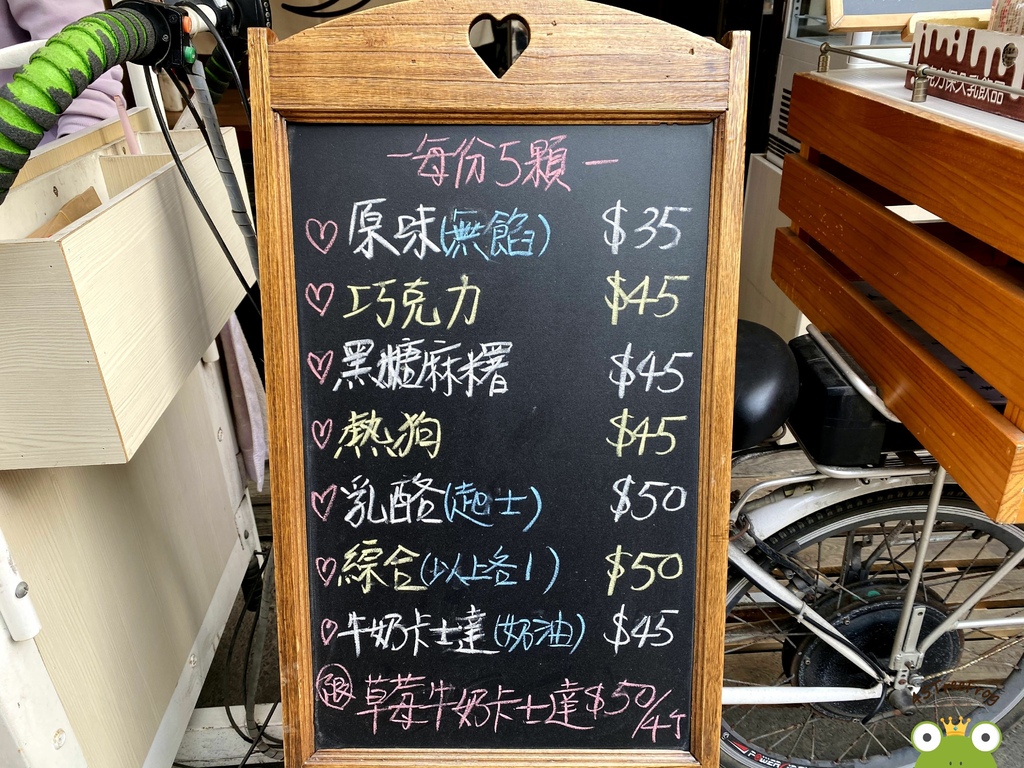 －每份5顆－
原味(無餡) $35
巧克力 $45
黑糖麻糬 $45
熱狗 $45
乳酪(起士) $50
綜合(以上各1) $50
牛奶卡士達(奶油) $45
限 草莓牛奶卡士達$50/4个
巧克力保久乳飲品
POWER